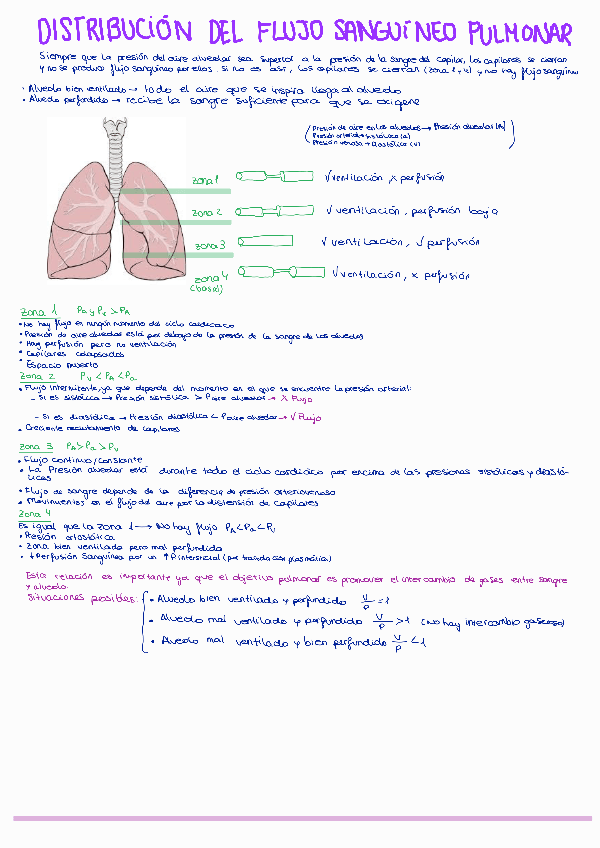 DISTRIBUCIÓN DEL FLUJO SANGUÍNEO PULMONAR
Siempre que la presión del aire alveolar sea superior a la presión de la sangre del capilar, los capilares se cierran
y no se produce flujo sanguíneo por ellos. Si no es así, los capilares se cierran (zona 1 y 4) y no hay flujo sanguíneo
• Alveolo bien ventilado → todo el aire que se inspira llega al alveolo
• Alveolo perfundido → recibe la sangre suficiente para que se oxigene
Presión de aire en los alveolos → Presión alveolar (A)
Presión arterial → sistólica (a)
Presión venosa → Diastólica (v)
zona 1 √ ventilación, x perfusión
zona 2 √ ventilación, perfusión baja
zona 3 √ ventilación, √ perfusión
zona 4 √ ventilación, x perfusión
(basal)
zona 1 Pa y Pv > PA
• No hay flujo en ningún momento del ciclo cardiaco
• Presión de aire alveolar está por debajo de la presión de la sangre de los alveolos
• Hay perfusión pero no ventilación
• Capilares colapsados
• Espacio muerto
zona 2 Pv < PA < Pa
• Flujo intermitente, ya que depende del momento en el que se encuentre la presión arterial:
– Si es sistólica → Presión sistólica > Paire alveolar → X Flujo
– Si es diastólica → Presión diastólica < Paire alveolar → √ Flujo
• Creciente reclutamiento de capilares
zona 3 PA > Pa > Pv
• Flujo continuo/constante
• La Presión alveolar está durante todo el ciclo cardiaco por encima de las presiones sistólicas y diastó-
licas
• Flujo de sangre depende de la diferencia de presión arteriovenosa
• Movimientos en el flujo del aire por la distensión de capilares
zona 4
Es igual que la zona 1 → No hay flujo PA < Pa < Pv
• Presión ortostática
• Zona bien ventilada pero mal perfundida
• ↓ Perfusión Sanguínea por un ↑ P intersticial (por trasudación plasmática)
Esta relación es importante ya que el objetivo pulmonar es promover el intercambio de gases entre sangre
y alveolo.
Situaciones posibles: • Alveolo bien ventilado y perfundido V/P = 1
• Alveolo mal ventilado y perfundido V/P > 1 (No hay intercambio gaseoso)
• Alveolo mal ventilado y bien perfundido V/P < 1